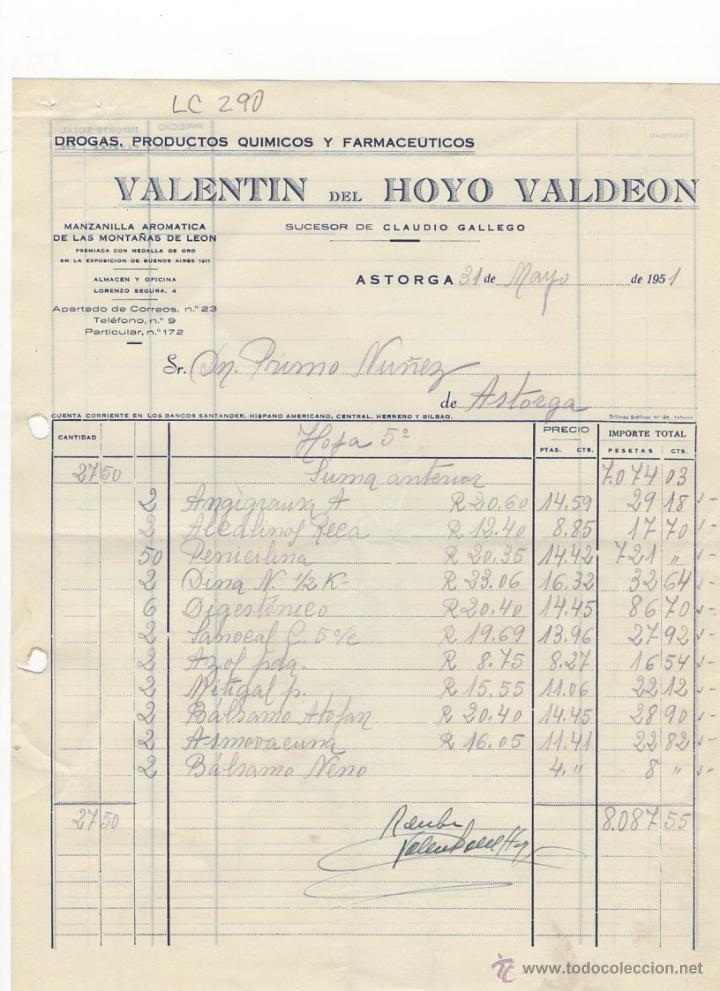 LC 290
DROGAS, PRODUCTOS QUIMICOS Y FARMACEUTICOS
VALENTIN DEL HOYO VALDEON
MANZANILLA AROMATICA
DE LAS MONTAÑAS DE LEON
PREMIADA CON MEDALLA DE ORO
EN LA EXPOSICION DE BUENOS AIRES 1911
ALMACEN Y OFICINA
LORENZO SEGURA, 4
Apartado de Correos, n.º 23
Teléfono, n.º 9
Particular, n.º 172
SUCESOR DE CLAUDIO GALLEGO
ASTORGA 31 de Mayo de 1951
Sr. Dn. Primo Nuñez
de Astorga
CUENTA CORRIENTE EN LOS BANCOS SANTANDER, HISPANO AMERICANO, CENTRAL, HERRERO Y BILBAO.
CANTIDAD Hoja 5ª PRECIO PTAS. CTS. IMPORTE TOTAL PESETAS CTS.
27 50 Suma anterior 7.074 03
2 R 20.60 14.59 29 18
2 Alcalinos Reca R 12.40 8.85 17 70
50 Penicilina R 20.35 14.42 721 "
2 Dina N. 1/2 K- R 23.06 16.32 32 64
6 Digestónico R 20.40 14.45 86 70
2 Sanocal C. 5 c/c R 19.69 13.96 27 92
2 Azol pda. R 8.75 8.27 16 54
2 Mitigal p. R 15.55 11.06 22 12
2 Bálsamo Atofan R 20.40 14.45 28 90
2 Asmovacuna R 16.05 11.41 22 82
2 Bálsamo Neno 4." 8 "
27 50 8.087 55
www.todocoleccion.net